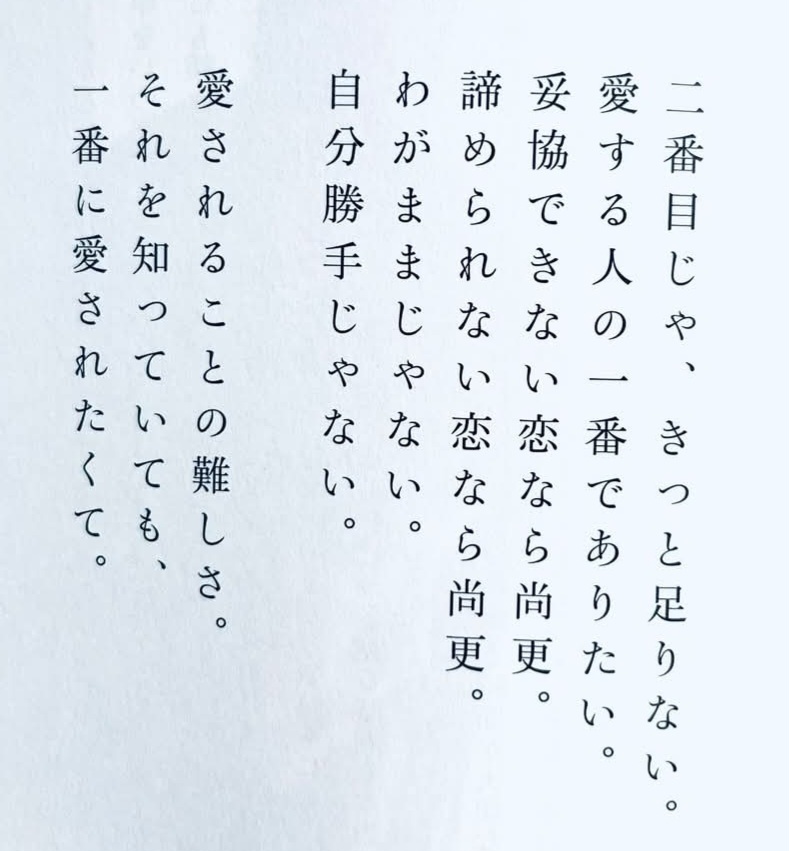 二番目じゃ、きっと足りない。
愛する人の一番でありたい。
妥協できない恋なら尚更。
諦められない恋なら尚更。
わがままじゃない。
自分勝手じゃない。
愛されることの難しさ。
それを知っていても、
一番に愛されたくて。